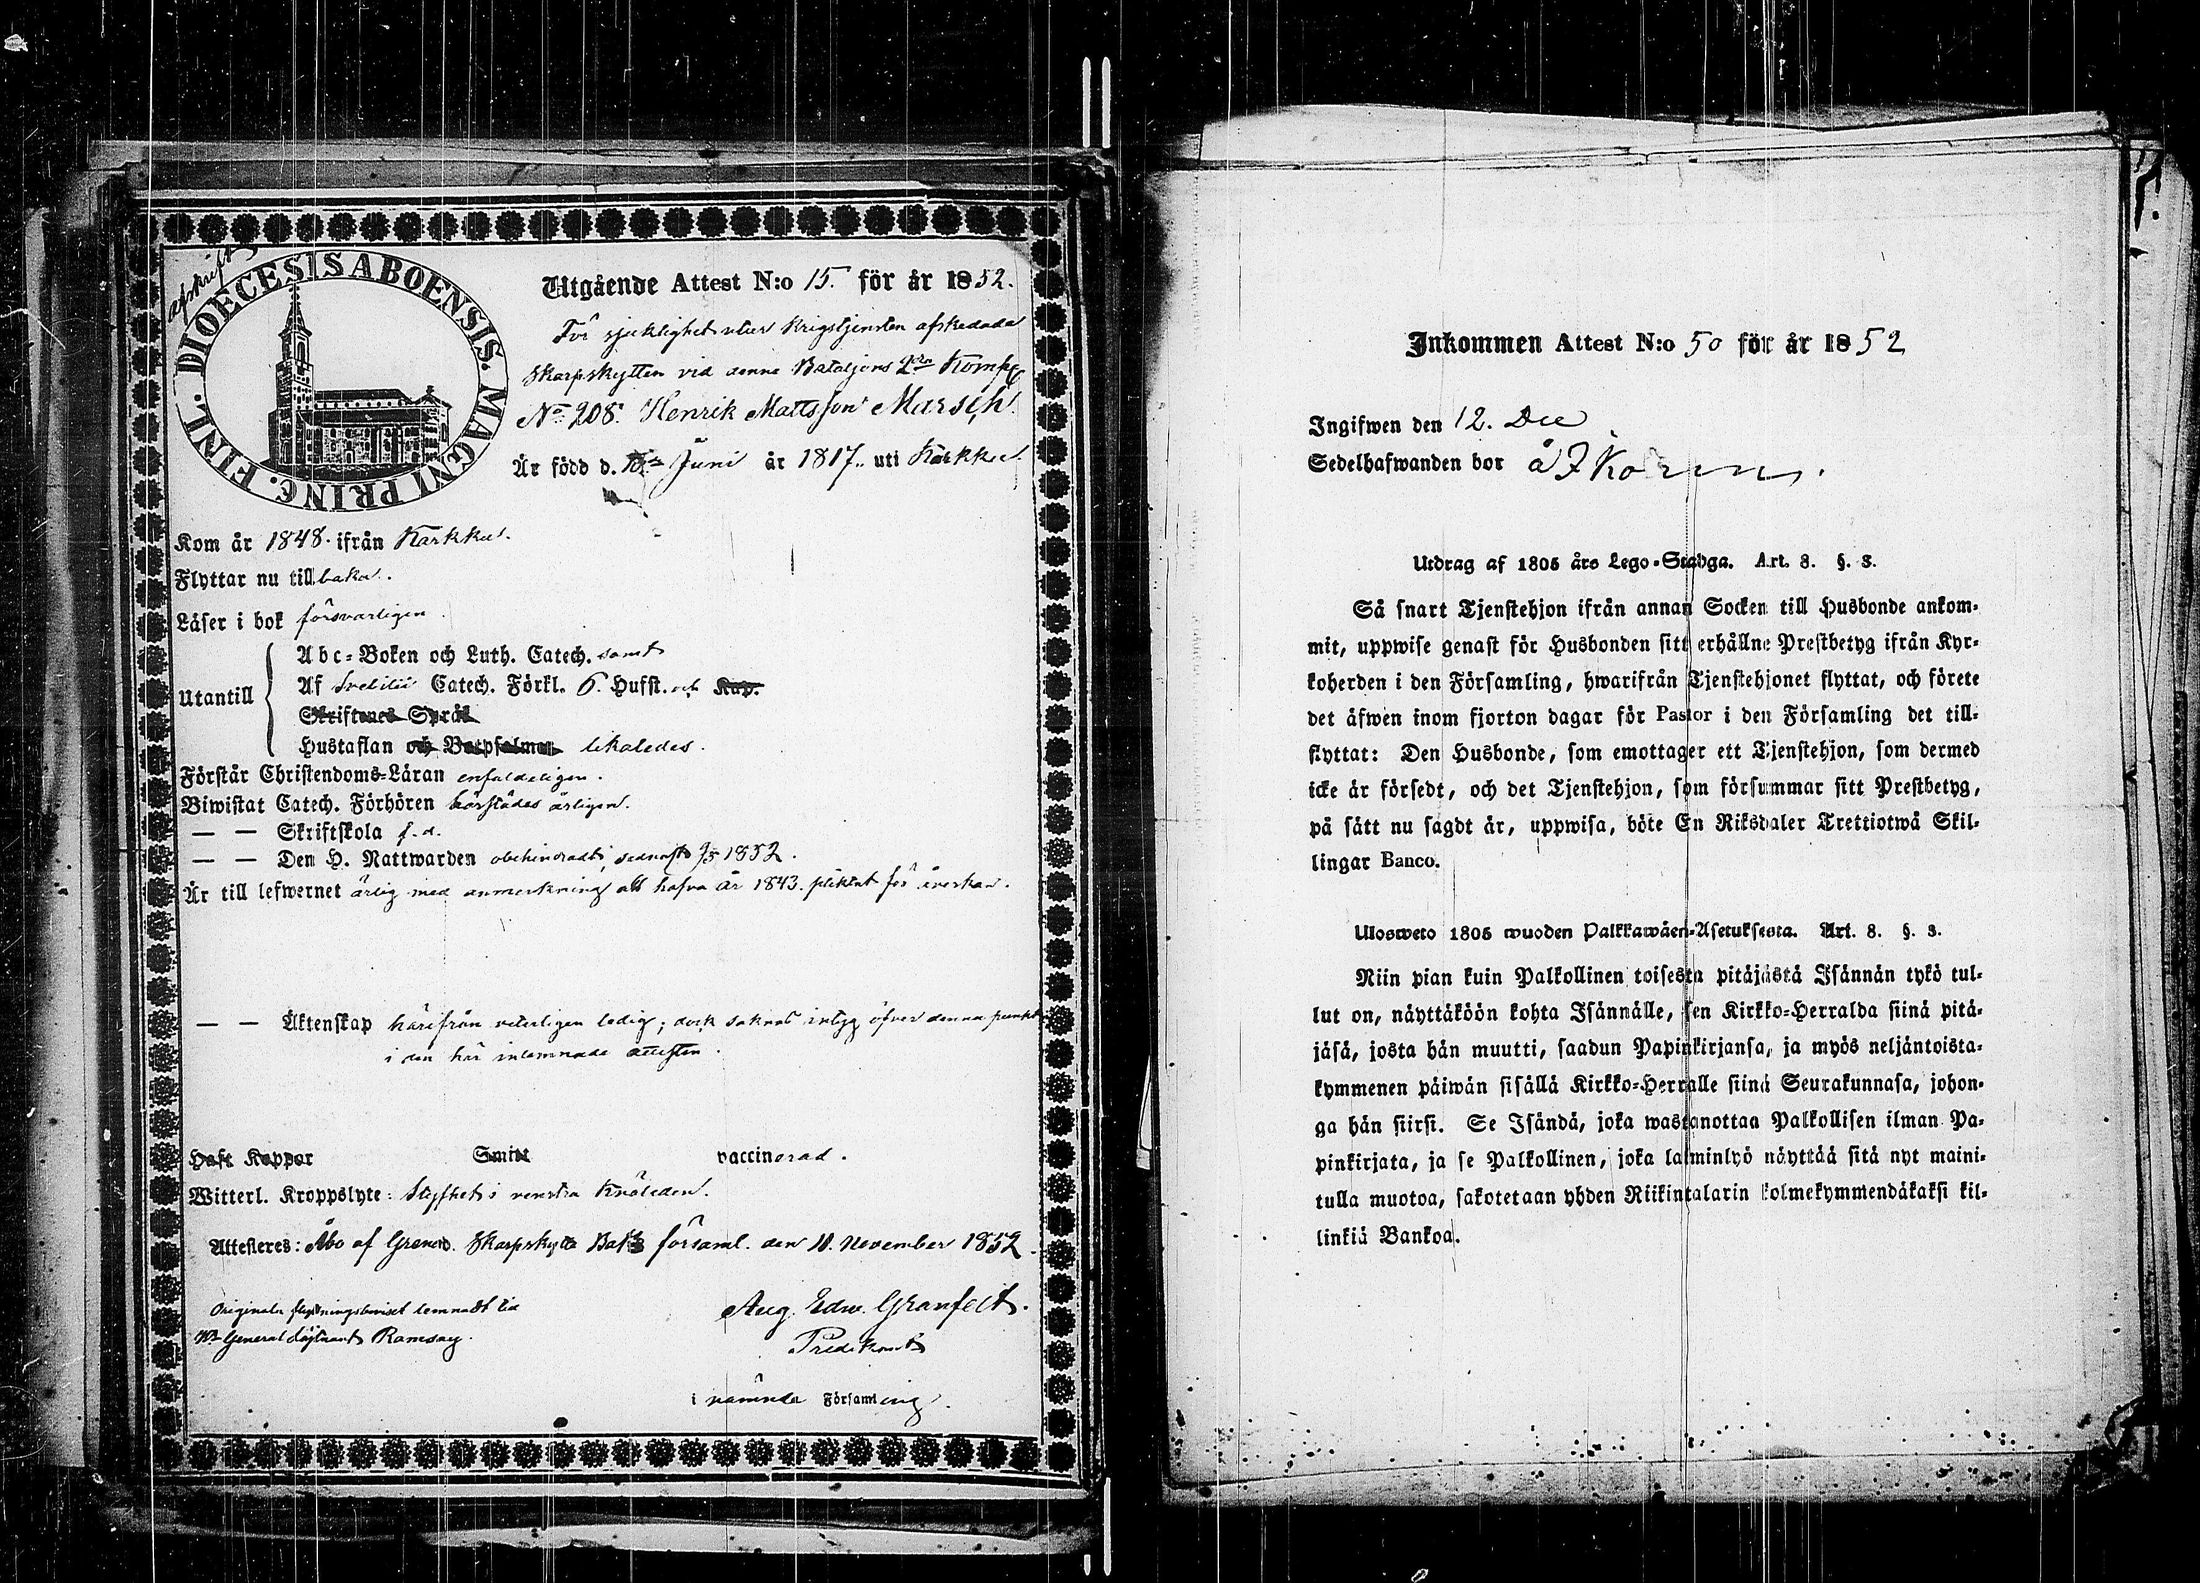 afskrift
DIOECESIS ABOENSIS. MAGNI PRINC. FINL.
Utgående Attest N:o 15. för år 1852.
För sjuklighet utur Krigstjensten afskedade
Skarpskytten vid denna Bataljons 2dra Komp.
No 208. Henrik Mattsson Marsch.
Är född d. Juni år 1817. uti Karkku.
Kom år 1848. ifrån Karkku.
Flyttar nu tillbaka.
Läser i bok försvarligen.
Utantill
Abc-Boken och Luth. Catech. samt
Af Svebilii Catech. Förkl. 6. Hufst. och Kap.
Skriftenes Språk
Hustaflan och Botpsalmen likaledes.
Förstår Christendoms-Läran enfaldeligen.
Biwistat Catech. Förhören härstädes årligen.
— — Skriftskola f.d.
— — Den H. Nattwarden obehindradt, sednast 1852.
Är till lefwernet ärlig med anmerkning att hafva år 1843. pliktat för åverkan.
— — Äktenskap härifrån veterligen ledig; dock saknas intyg öfver denna punkt
i den här inlemnade attesten.
Haft Koppor Smitt vaccinerad.
Witterl. Kroppslyte: Styfhet i venstra Knäleden.
Attesteras: Åbo af Grenad. Skarpskytte Bat:s församl. den 18. November 1852.
Originala flyttningsbeviset lemnadt till
Hr General Löjtnant Ramsay.
Aug. Edw. Granfelt.
Predikant
i nämnda Församling.
Inkommen Attest N:o 50 för år 1852
Ingifwen den 12. Dec
Sedelhafwanden bor å
Utdrag af 1805 års Lego-Stadga. Art. 8. §. 3.
Så snart Tjenstehjon ifrån annan Socken till Husbonde ankom-
mit, uppwise genast för Husbonden sitt erhållne Prestbetyg ifrån Kyr-
koherden i den Församling, hwarifrån Tjenstehjonet flyttat, och förete
det äfwen inom fjorton dagar för Pastor i den Församling det till-
flyttat: Den Husbonde, som emottager ett Tjenstehjon, som dermed
icke är försedt, och det Tjenstehjon, som försummar sitt Prestbetyg,
på sätt nu sagdt är, uppwisa, böte En Riksdaler Trettiotwå Skil-
lingar Banco.
Ulosweto 1805 wuoden Palkkawäen-Asetuksesta. Art. 8. §. 3.
Niin pian kuin Palkollinen toisesta pitäjästä Isännän tykö tul-
lut on, näyttäköön kohta Isännälle, sen Kirkko-Herralda siinä pitä-
jäsä, josta hän muutti, saadun Papinkirjansa, ja myös neljäntoista-
kymmenen päiwän sisällä Kirkko-Herralle siinä Seurakunnasa, johon-
ga hän siirsi. Se Isändä, joka wastanottaa Palkollisen ilman Pa-
pinkirjata, ja se Palkollinen, joka laiminlyö näyttää sitä nyt maini-
tulla muotoa, sakotetaan yhden Riikintalarin kolmekymmendäkaksi kil-
linkiä Bankoa.